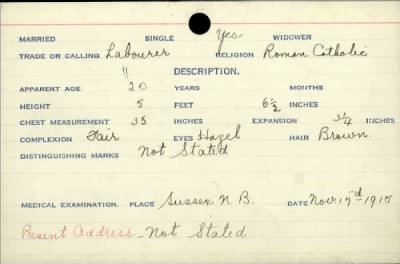 MARRIED SINGLE Yes WIDOWER
TRADE OR CALLING Labourer RELIGION Roman Catholic
" DESCRIPTION.
APPARENT AGE 20 YEARS MONTHS
HEIGHT 5 FEET 6½ INCHES
CHEST MEASUREMENT 35 INCHES EXPANSION 3¼ INCHES
COMPLEXION Fair EYES Hazel HAIR Brown.
DISTINGUISHING MARKS Not Stated
MEDICAL EXAMINATION. PLACE Sussex N.B. DATE Nov.
Present Address - Not Stated